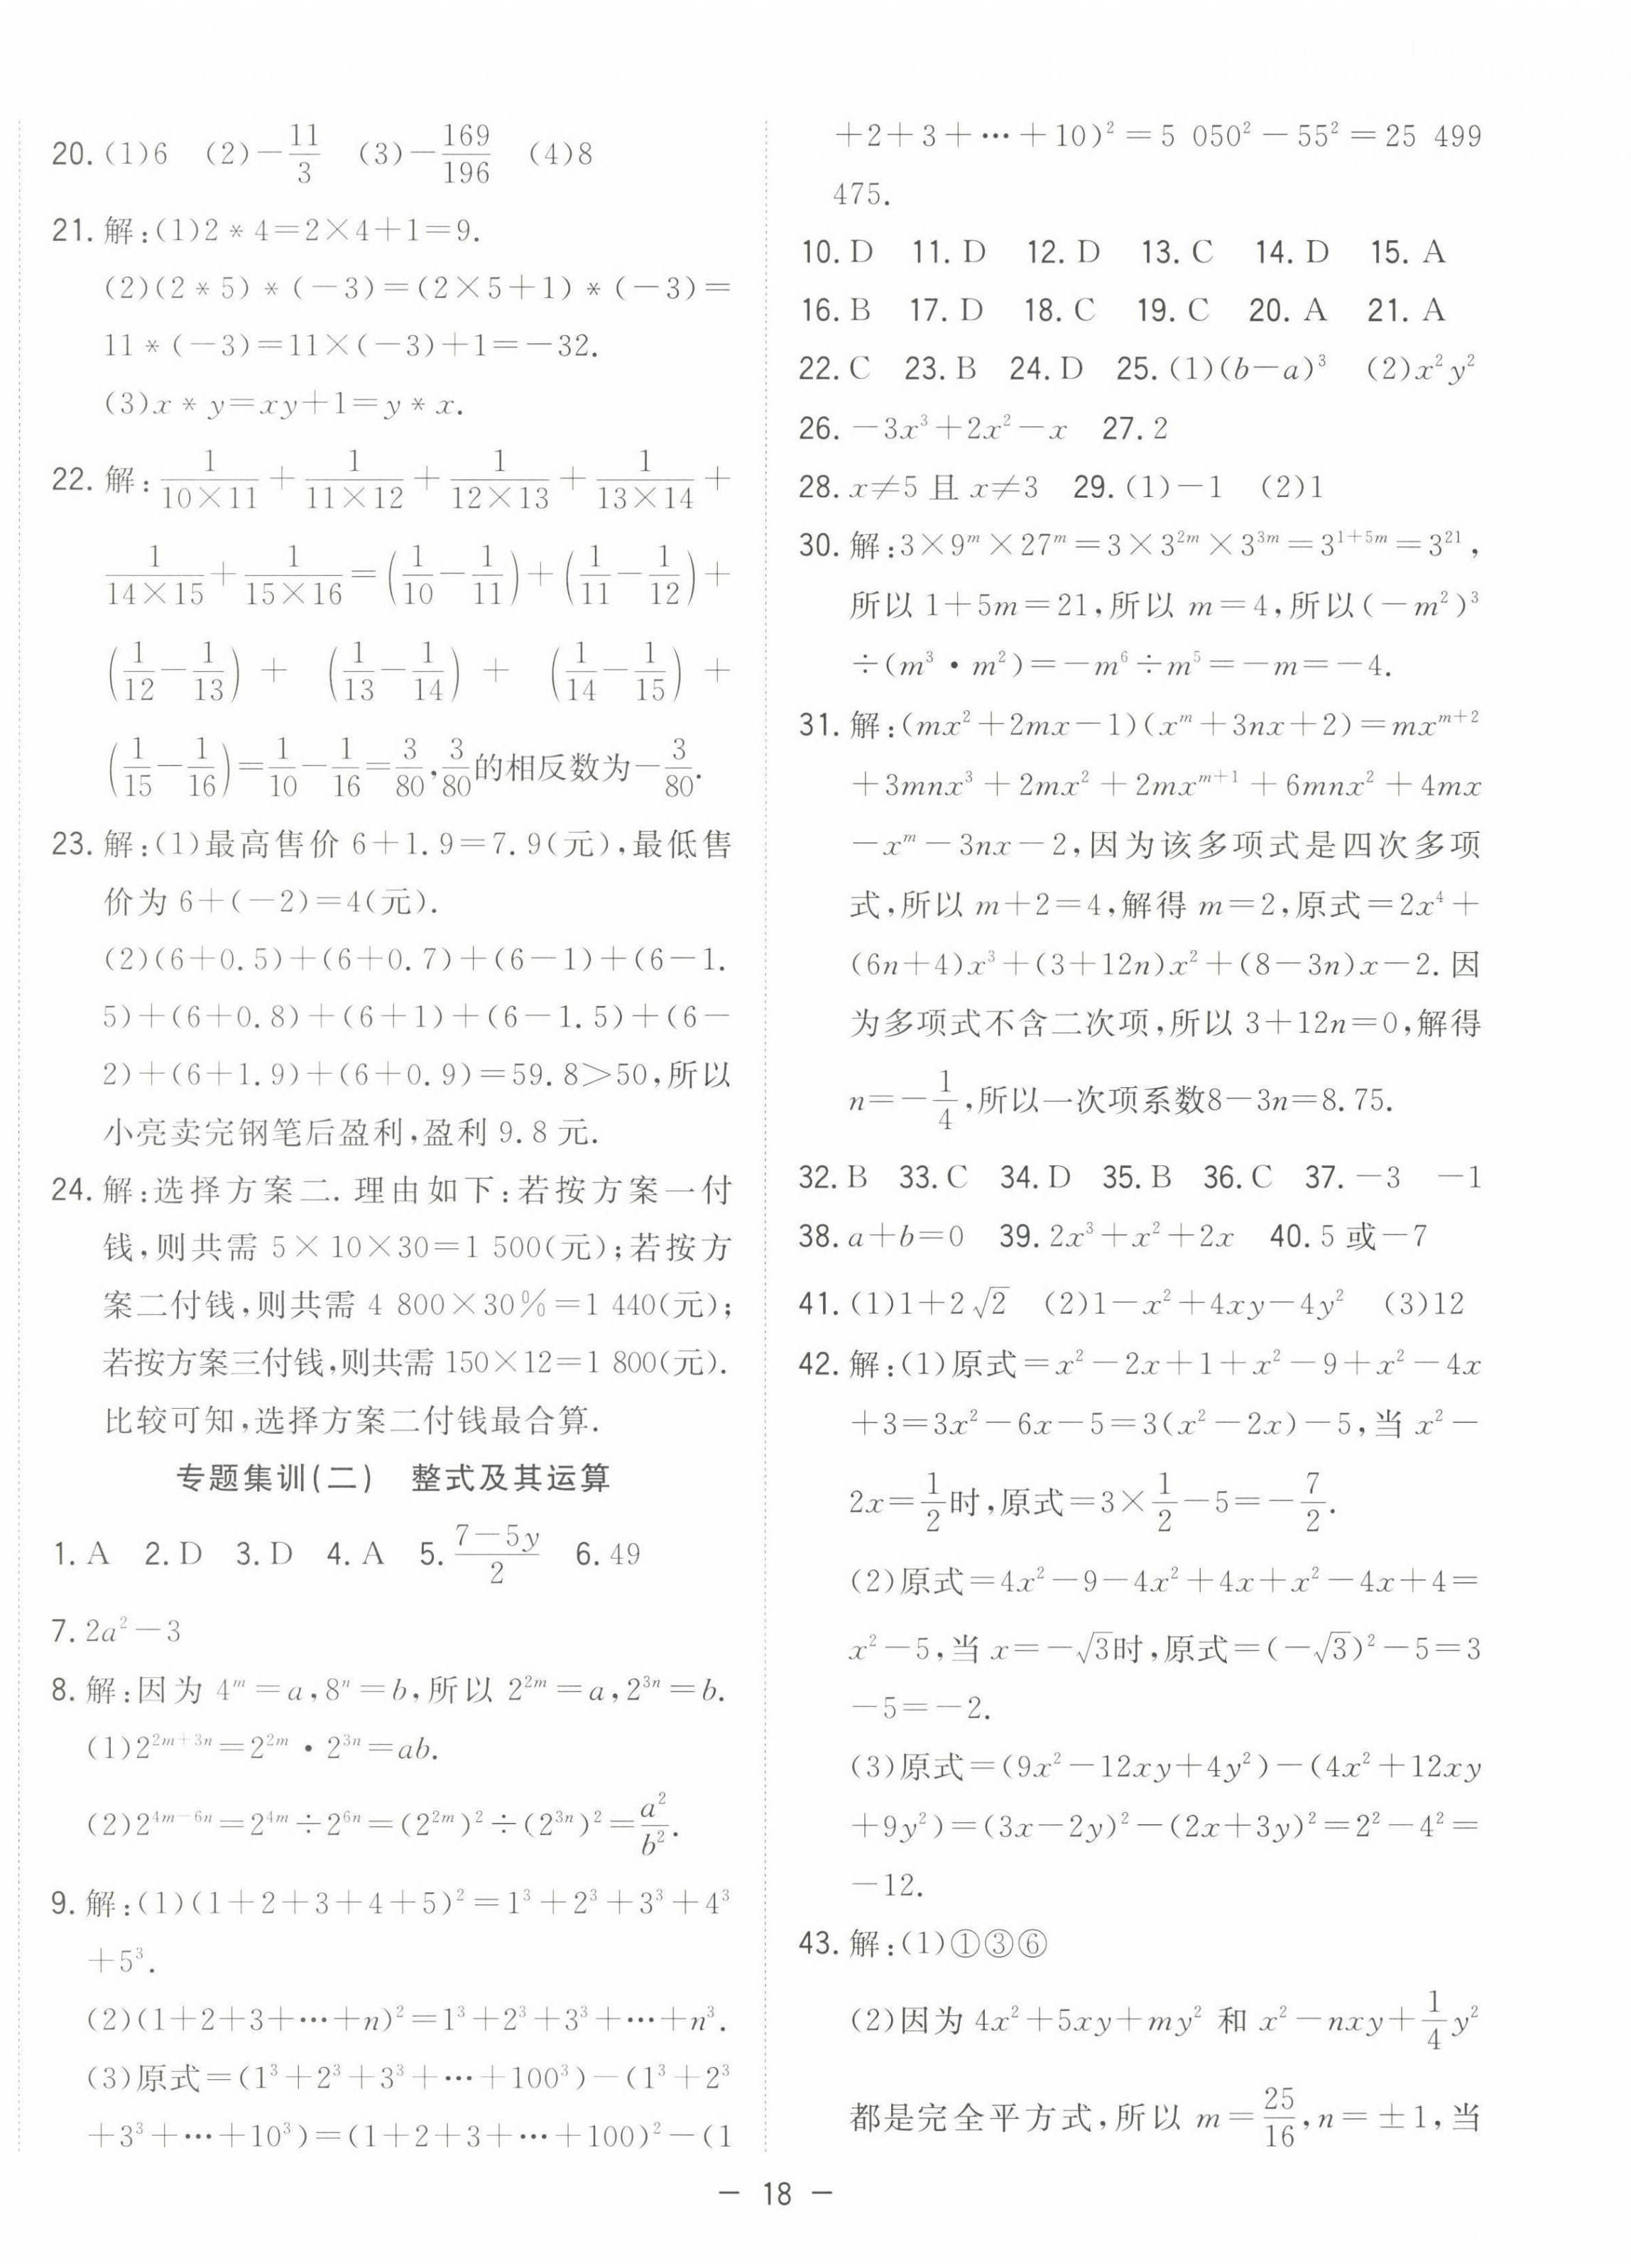 20. (1)6 (2)－11/3 (3)－169/196 (4)8
21. 解:(1)2 * 4=2×4+1=9.
(2)(2 * 5) * (－3)=(2×5+1) * (－3)=
11 * (－3)=11×(－3)+1=－32.
(3)x * y=xy+1=y * x.
22. 解: 1/(10×11) + 1/(11×12) + 1/(12×13) + 1/(13×14) +
1/(14×15) + 1/(15×16) = (1/10－1/11) + (1/11－1/12) +
(1/12－1/13) + (1/13－1/14) + (1/14－1/15) +
(1/15－1/16) = 1/10－1/16 = 3/80, 3/80的相反数为－3/80.
23. 解:(1)最高售价 6+1.9=7.9(元),最低售
价为 6+(－2)=4(元).
(2)(6+0.5)+(6+0.7)+(6－1)+(6－1.
5)+(6+0.8)+(6+1)+(6－1.5)+(6－
2)+(6+1.9)+(6+0.9)=59.8>50,所以
小亮卖完钢笔后盈利,盈利 9.8 元.
24. 解:选择方案二. 理由如下:若按方案一付
钱,则共需 5×10×30=1 500(元);若按方
案二付钱,则共需 4 800×30%=1 440(元);
若按方案三付钱,则共需 150×12=1 800(元).
比较可知,选择方案二付钱最合算.
专题集训(二) 整式及其运算
1. A 2. D 3. D 4. A 5. (7－5y)/2 6. 49
7. 2a²－3
8. 解:因为 4^m=a,8^n=b,所以 2^(2m)=a,2^(3n)=b.
(1)2^(2m+3n)=2^(2m)·2^(3n)=ab.
(2)2^(4m－6n)=2^(4m)÷2^(6n)=(2^(2m))²÷(2^(3n))²=a²/b².
9. 解:(1)(1+2+3+4+5)²=1³+2³+3³+4³
+5³.
(2)(1+2+3+…+n)²=1³+2³+3³+…+n³.
(3)原式=(1³+2³+3³+…+100³)－(1³+2³
+3³+…+10³)=(1+2+3+…+100)²－(1
+2+3+…+10)²=5 050²－55²=25 499
475.
10. D 11. D 12. D 13. C 14. D 15. A
16. B 17. D 18. C 19. C 20. A 21. A
22. C 23. B 24. D 25. (1)(b－a)³ (2)x²y²
26. －3x³+2x²－x 27. 2
28. x≠5 且 x≠3 29. (1)－1 (2)1
30. 解:3×9^m×27^m=3×3^(2m)×3^(3m)=3^(1+5m)=3²¹,
所以 1+5m=21,所以 m=4,所以(－m²)³
÷(m³·m²)=－m⁶÷m⁵=－m=－4.
31. 解:(mx²+2mx－1)(x^m+3nx+2)=mx^(m+2)
+3mnx³+2mx²+2mx^(m+1)+6mnx²+4mx
－x^m－3nx－2,因为该多项式是四次多项
式,所以 m+2=4,解得 m=2,原式=2x⁴+
(6n+4)x³+(3+12n)x²+(8－3n)x－2. 因
为多项式不含二次项,所以 3+12n=0,解得
n=－1/4,所以一次项系数8－3n=8.75.
32. B 33. C 34. D 35. B 36. C 37. －3 －1
38. a+b=0 39. 2x³+x²+2x 40. 5 或－7
41. (1)1+2√2 (2)1－x²+4xy－4y² (3)12
42. 解:(1)原式=x²－2x+1+x²－9+x²－4x
+3=3x²－6x－5=3(x²－2x)－5,当 x²－
2x=1/2时,原式=3×1/2－5=－7/2.
(2)原式=4x²－9－4x²+4x+x²－4x+4=
x²－5,当 x=－√3时,原式=(－√3)²－5=3
－5=－2.
(3)原式=(9x²－12xy+4y²)－(4x²+12xy
+9y²)=(3x－2y)²－(2x+3y)²=2²－4²=
－12.
43. 解:(1)①③⑥
(2)因为 4x²+5xy+my² 和 x²－nxy+1/4y²
都是完全平方式,所以 m=25/16,n=±1,当
－ 18 －